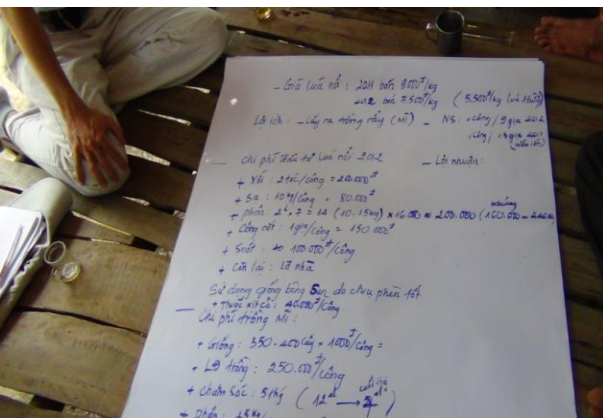 - Giá lúa nổi : 2011 bán 8000đ/kg
2012 bán 7.500đ/kg ( 5.500đ/kg lúa thường)
Lợi ích : - lấy rạ trồng rẫy (mì) - NS: 1công / 9 giạ 2012
1công / giạ 2011
- chi phí đầu tư lúa nổi 2012 - Lợi nhuận :
+ Xới : 2 lần/công = 000đ
+ Sạ : 10 kg/công = 80.000đ
+ phân : 2 x 7 = 14 (10.15kg) x 16.000 = 200.000 (160.000 -
+ Công cắt : 1giạ/công = 150.000đ
+ Suốt : 100.000đ/công
+ Còn lại : LĐ nhà
Sử dụng giống bông Sen do chịu phèn tốt
+ Thuốc xịt cỏ : 40.000đ/công
- Chi phí trồng Mì :
+ Giống : 350 - 400 cây x 1000đ/công =
+ LĐ trồng : 250.000đ/công
+ chăm sóc : 5 thg ( 12 → 4 )
+ phân :